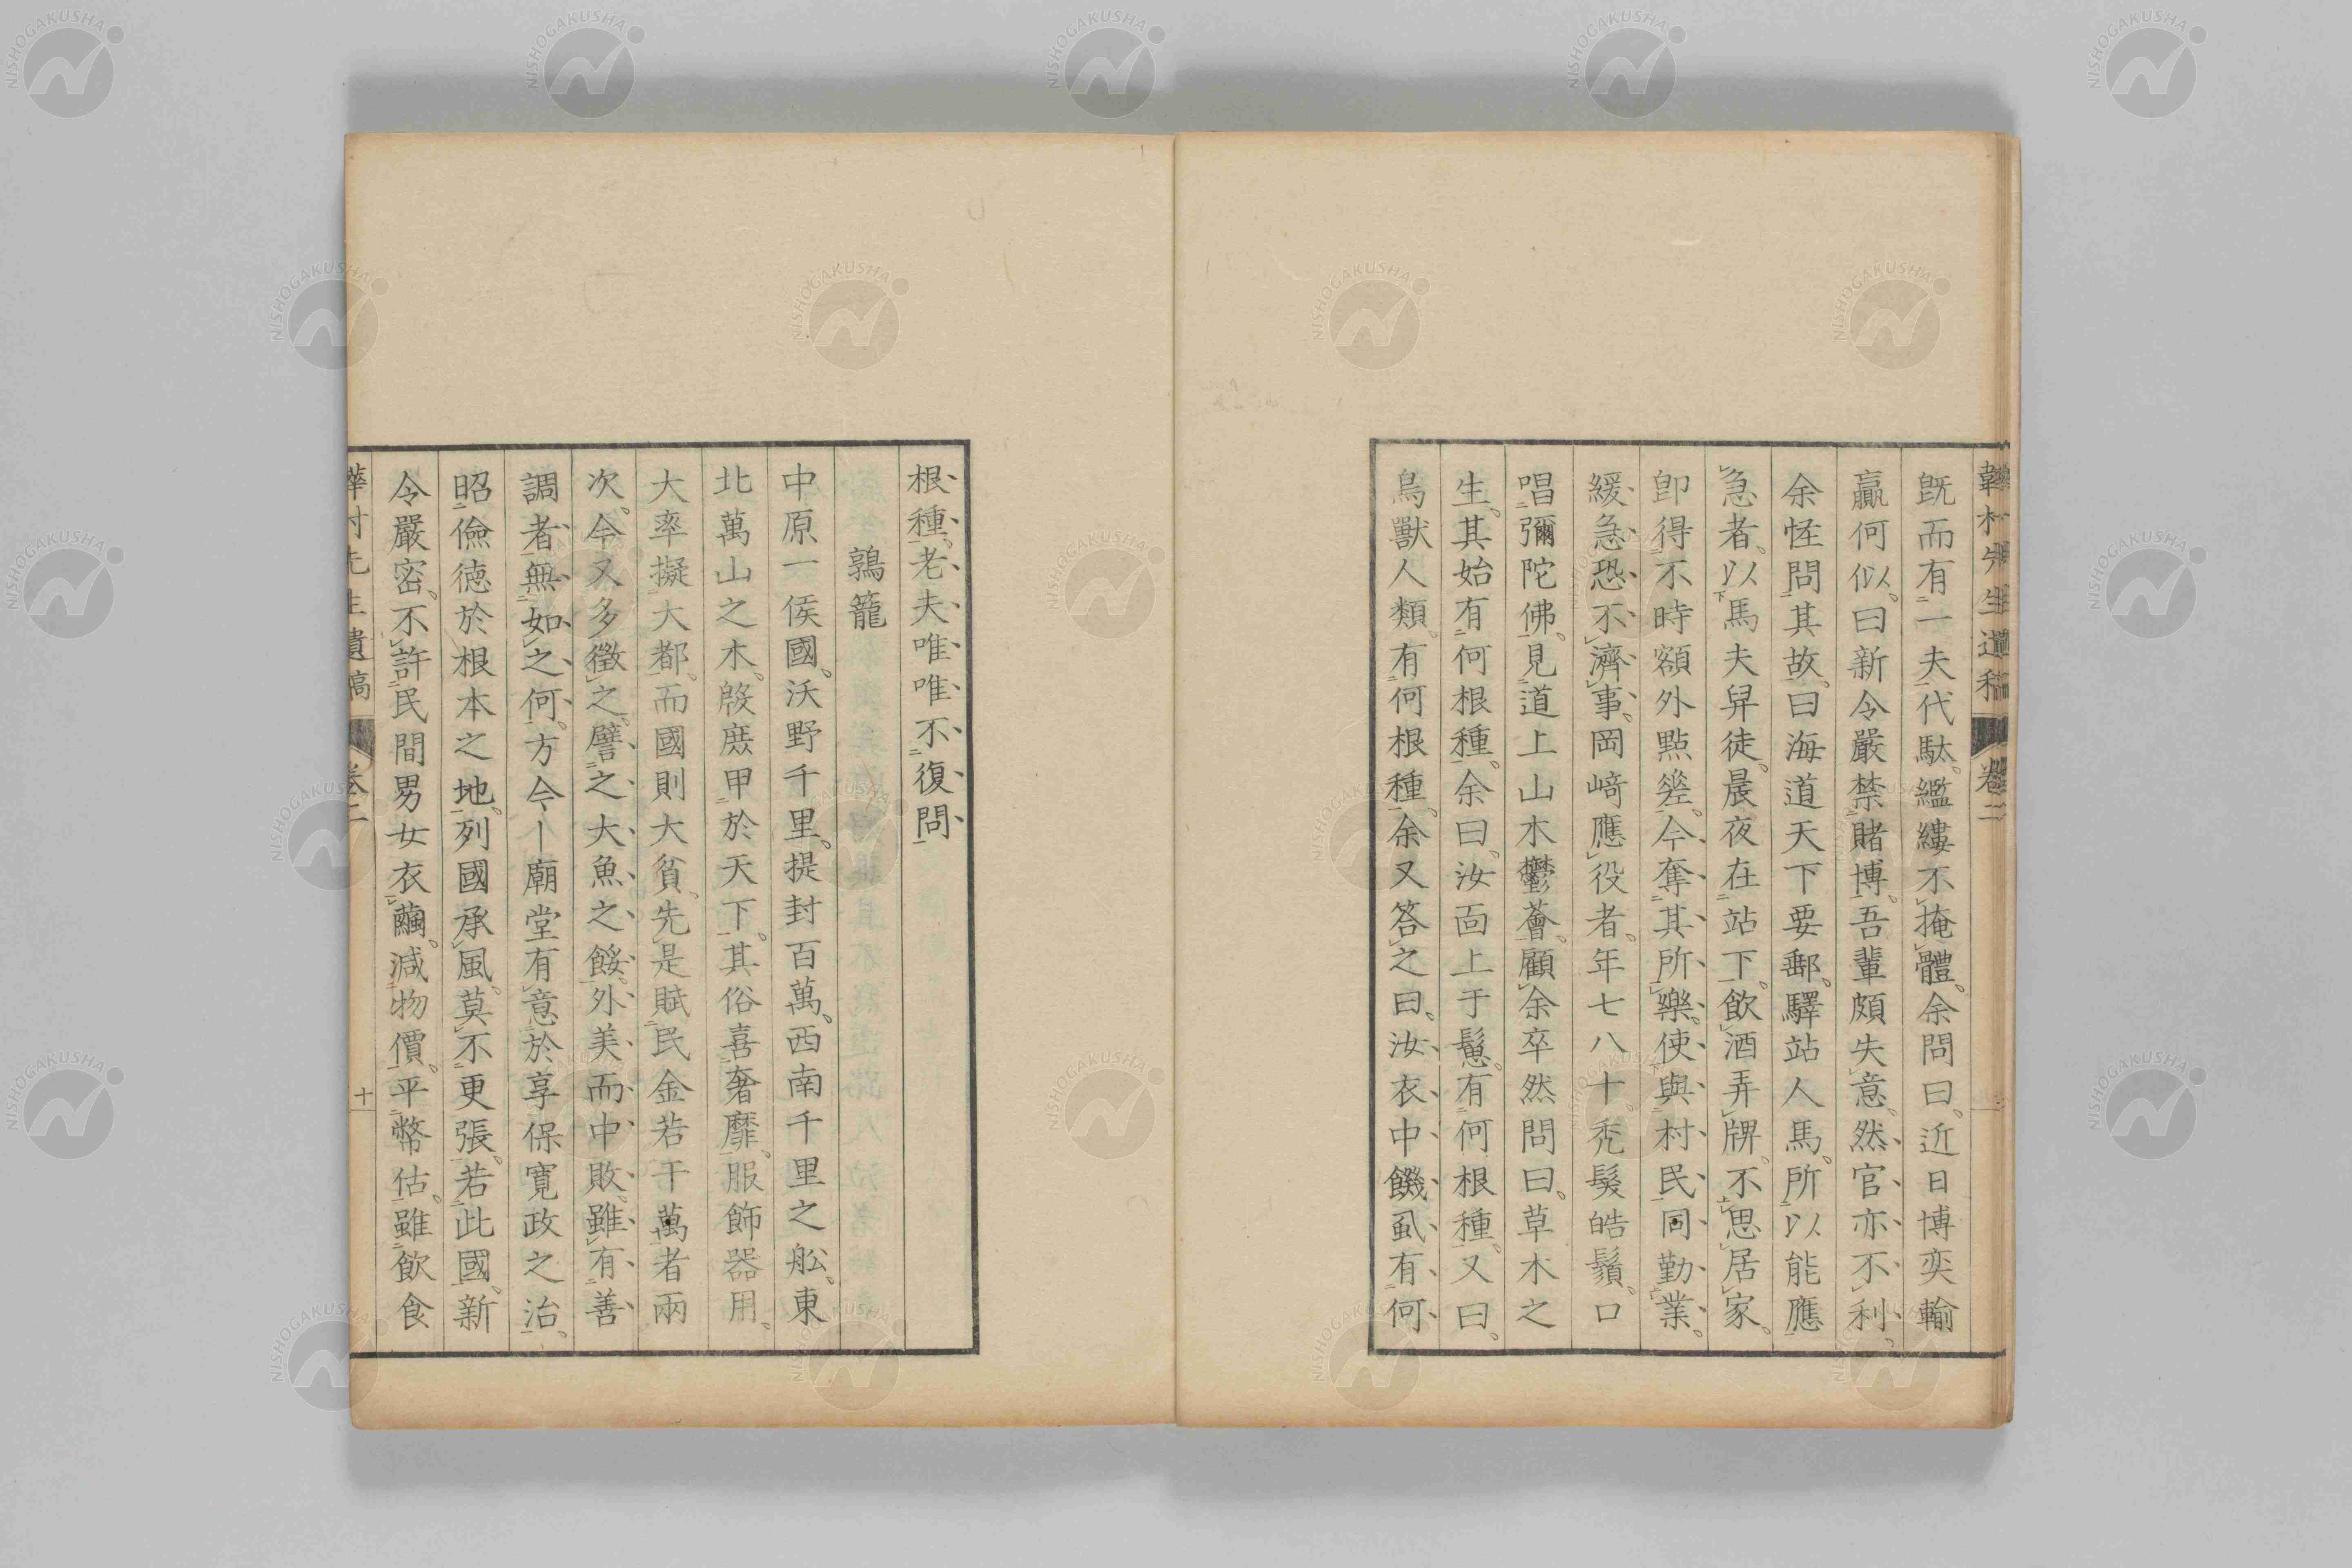 既而有一夫代馱。繿縷不掩體。余問曰。近日博奕輸
贏何似。曰新令嚴禁賭博。吾輩頗失意。然官亦不利。
余怪問其故。曰海道天下要郵。驛站人馬。所以能應
急者。以馬夫舁徒。晨夜在站下。飲酒弄牌。不思居家。
卽得不時額外點差。今奪其所樂。使與村民同勤業。
緩急恐不濟事。岡﨑應役者。年七八十。禿髮皓鬚。口
唱彌陀佛。見道上山木鬱薈。顧余卒然問曰。草木之
生。其始有何根種。余曰。汝面上于鬢。有何根種。又曰。
鳥獸人類。有何根種。余又答之曰。汝衣中饑虱有何
根種。老夫唯唯不復問
鶉籠
中原一侯國。沃野千里。提封百萬。西南千里之舩。東
北萬山之木。殷庶甲於天下。其俗喜奢靡。服飾器用。
大率擬大都。而國則大貧。先是賦民金若干萬者兩
次。今又多徵之。譬之大魚之餒。外美而中敗。雖有善
調者無如之何。方今廟堂有意於享保寬政之治。
昭儉德於根本之地。列國承風。莫不更張。若此國。新
令嚴密。不許民間男女衣繭。減物價。平幣估。雖飲食
先生遺稿 卷二 十
卷二
NISHOGAKUSHA